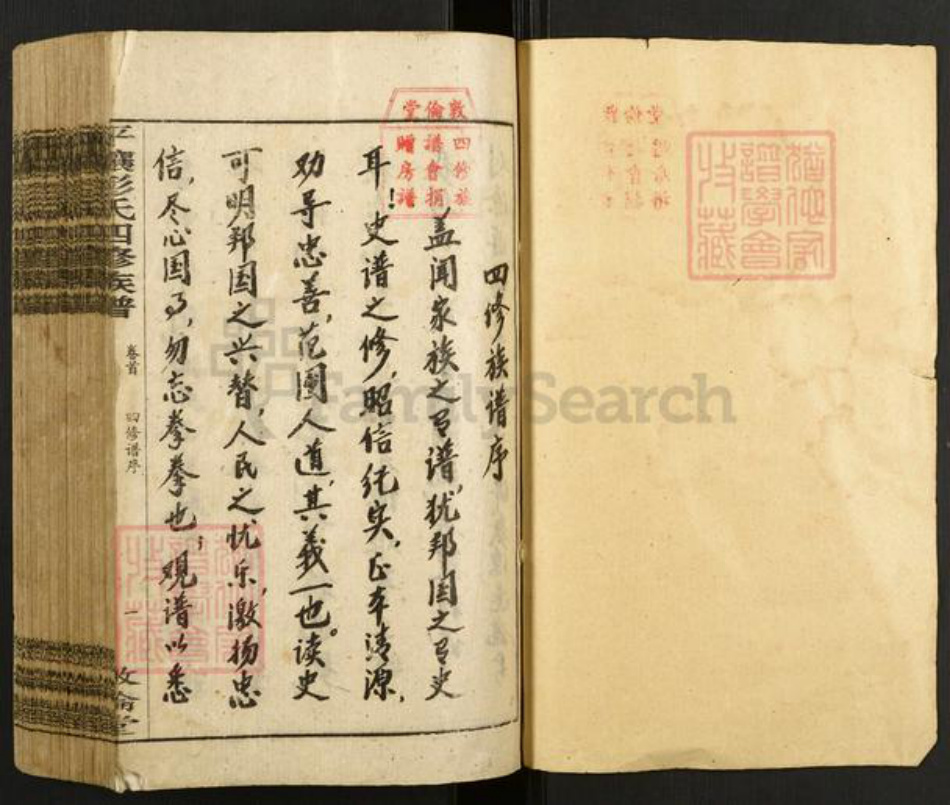 四修族谱序
盖闻家族之有谱,犹邦国之有史
耳!史谱之修,昭信纪实,正本清源,
劝导忠善,范围人道,其義一也。读史
可明邦国之兴替,人民之忧乐,激扬忠
信,尽心国事,勿忘拳拳也;观谱以悉
敦倫堂
四修族
譜會捐
贈房譜
彭氏四修族譜
卷首
四修谱序
一
敦倫堂
譜學會
收藏
FamilySearch